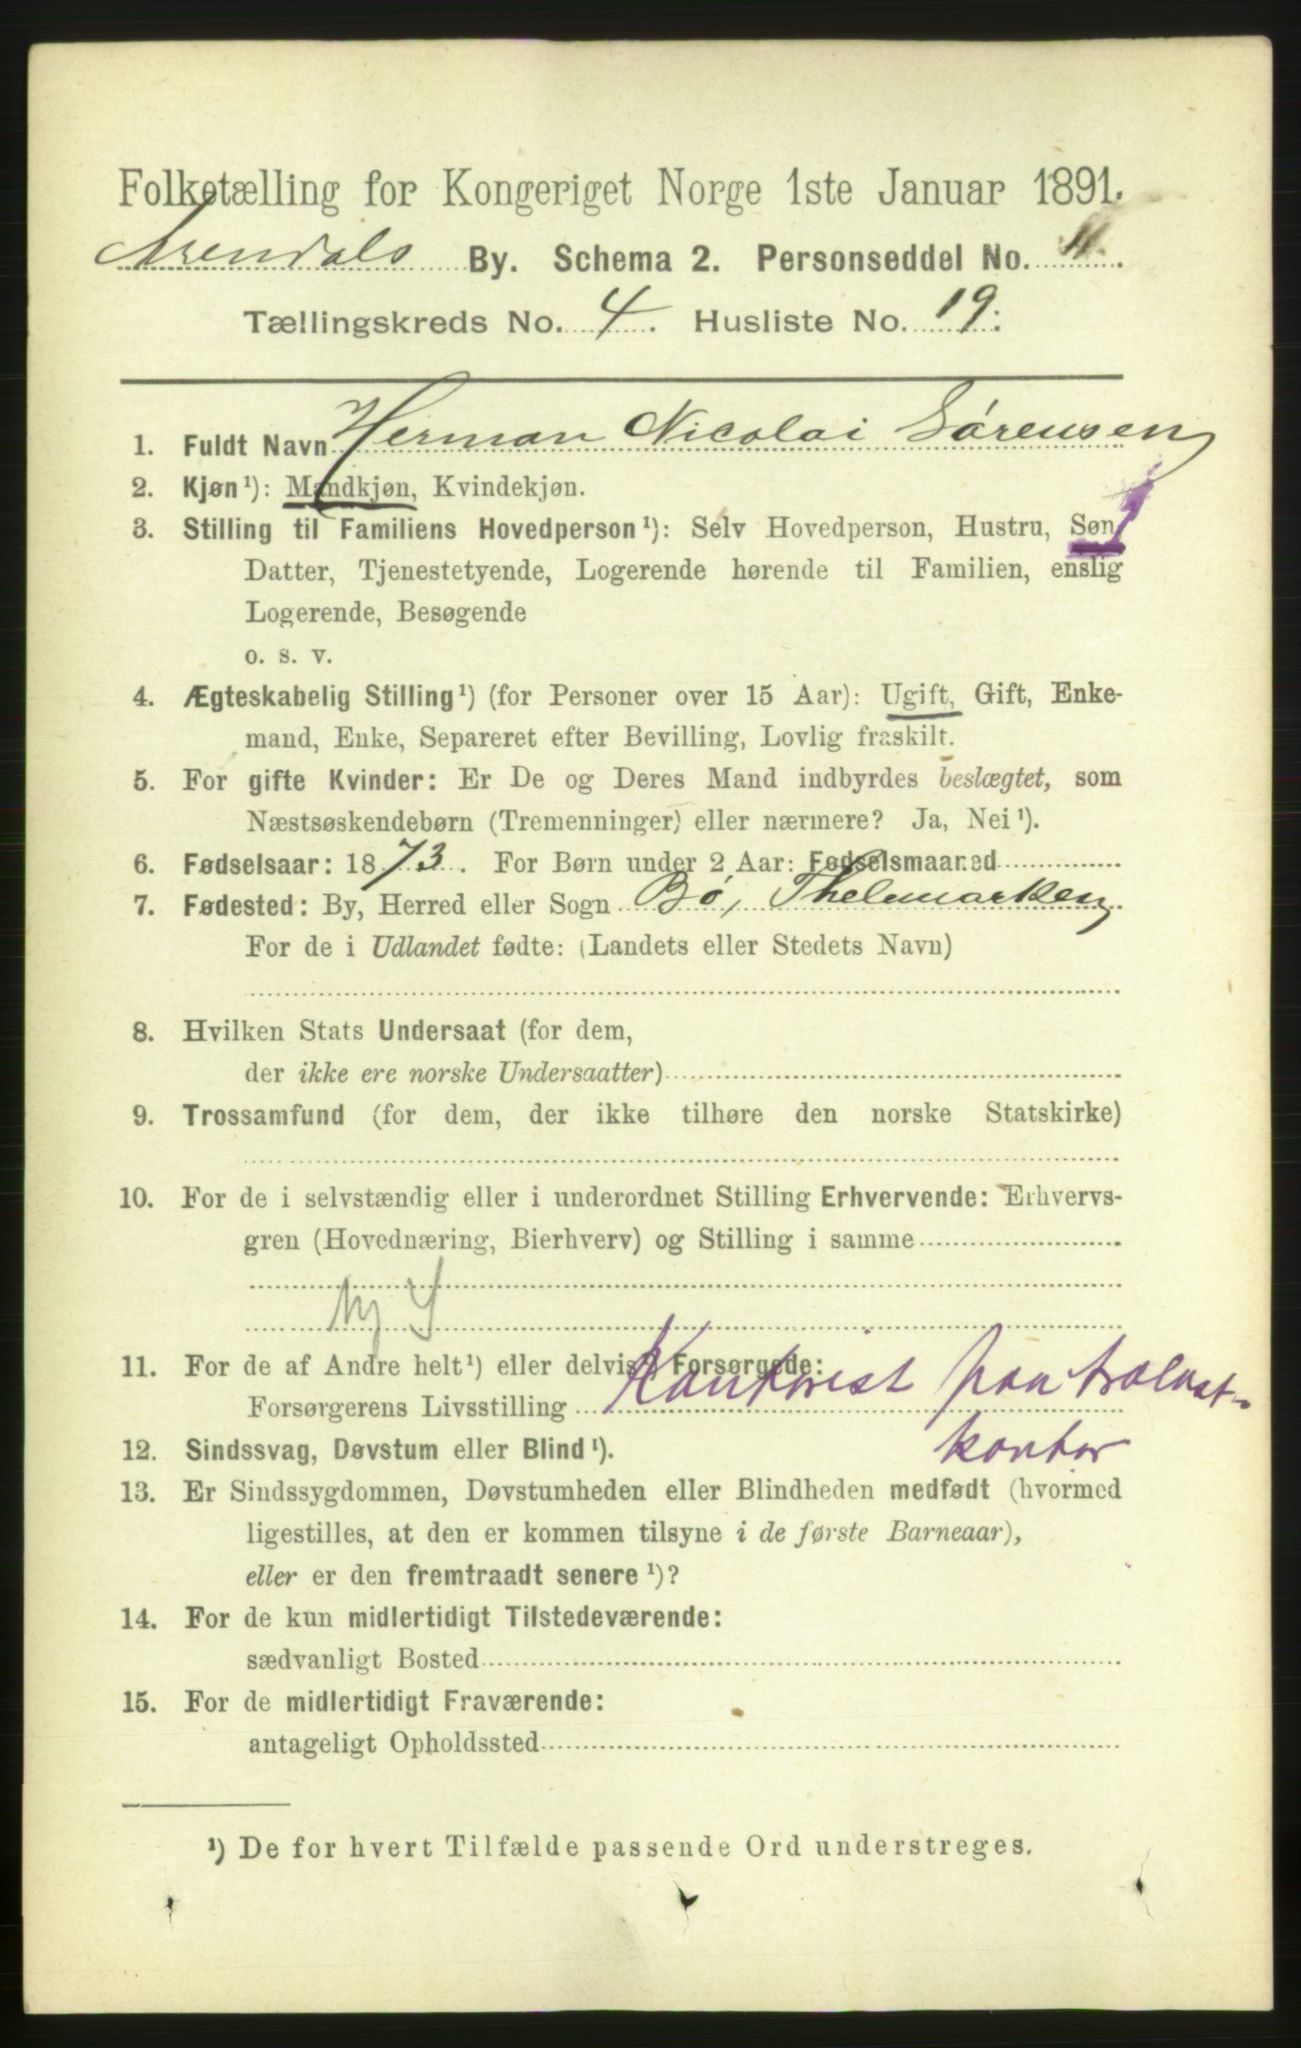 Folketælling for Kongeriget Norge 1ste Januar 1891.
Arendals By. Schema 2. Personseddel No. 11.
Tællingskreds No. 4. Husliste No. 19.
1. Fuldt Navn Herman Nicolai Sørensen
2. Kjøn¹): Mandkjøn, Kvindekjøn.
3. Stilling til Familiens Hovedperson¹): Selv Hovedperson, Hustru, Søn,
Datter, Tjenestetyende, Logerende hørende til Familien, enslig
Logerende, Besøgende
o. s. v.
4. Ægteskabelig Stilling¹) (for Personer over 15 Aar): Ugift, Gift, Enke-
mand, Enke, Separeret efter Bevilling, Lovlig fraskilt.
5. For gifte Kvinder: Er De og Deres Mand indbyrdes beslægtet, som
Næstsøskendebørn (Tremenninger) eller nærmere? Ja, Nei¹).
6. Fødselsaar: 1873. For Børn under 2 Aar: Fødselsmaaned
7. Fødested: By, Herred eller Sogn Bø, Thelemarken
For de i Udlandet fødte: (Landets eller Stedets Navn)
8. Hvilken Stats Undersaat (for dem,
der ikke ere norske Undersaatter)
9. Trossamfund (for dem, der ikke tilhøre den norske Statskirke)
10. For de i selvstændig eller i underordnet Stilling Erhvervende: Erhvervs-
gren (Hovednæring, Bierhverv) og Stilling i samme
11. For de af Andre helt¹) eller delvis¹) Forsørgede:
Forsørgerens Livsstilling Kontorist paa
kontor
12. Sindssvag, Døvstum eller Blind¹).
13. Er Sindssygdommen, Døvstumheden eller Blindheden medfødt (hvormed
ligestilles, at den er kommen tilsyne i de første Barneaar),
eller er den fremtraadt senere¹)?
14. For de kun midlertidigt Tilstedeværende:
sædvanligt Bosted
15. For de midlertidigt Fraværende:
antageligt Opholdssted
¹) De for hvert Tilfælde passende Ord understreges.